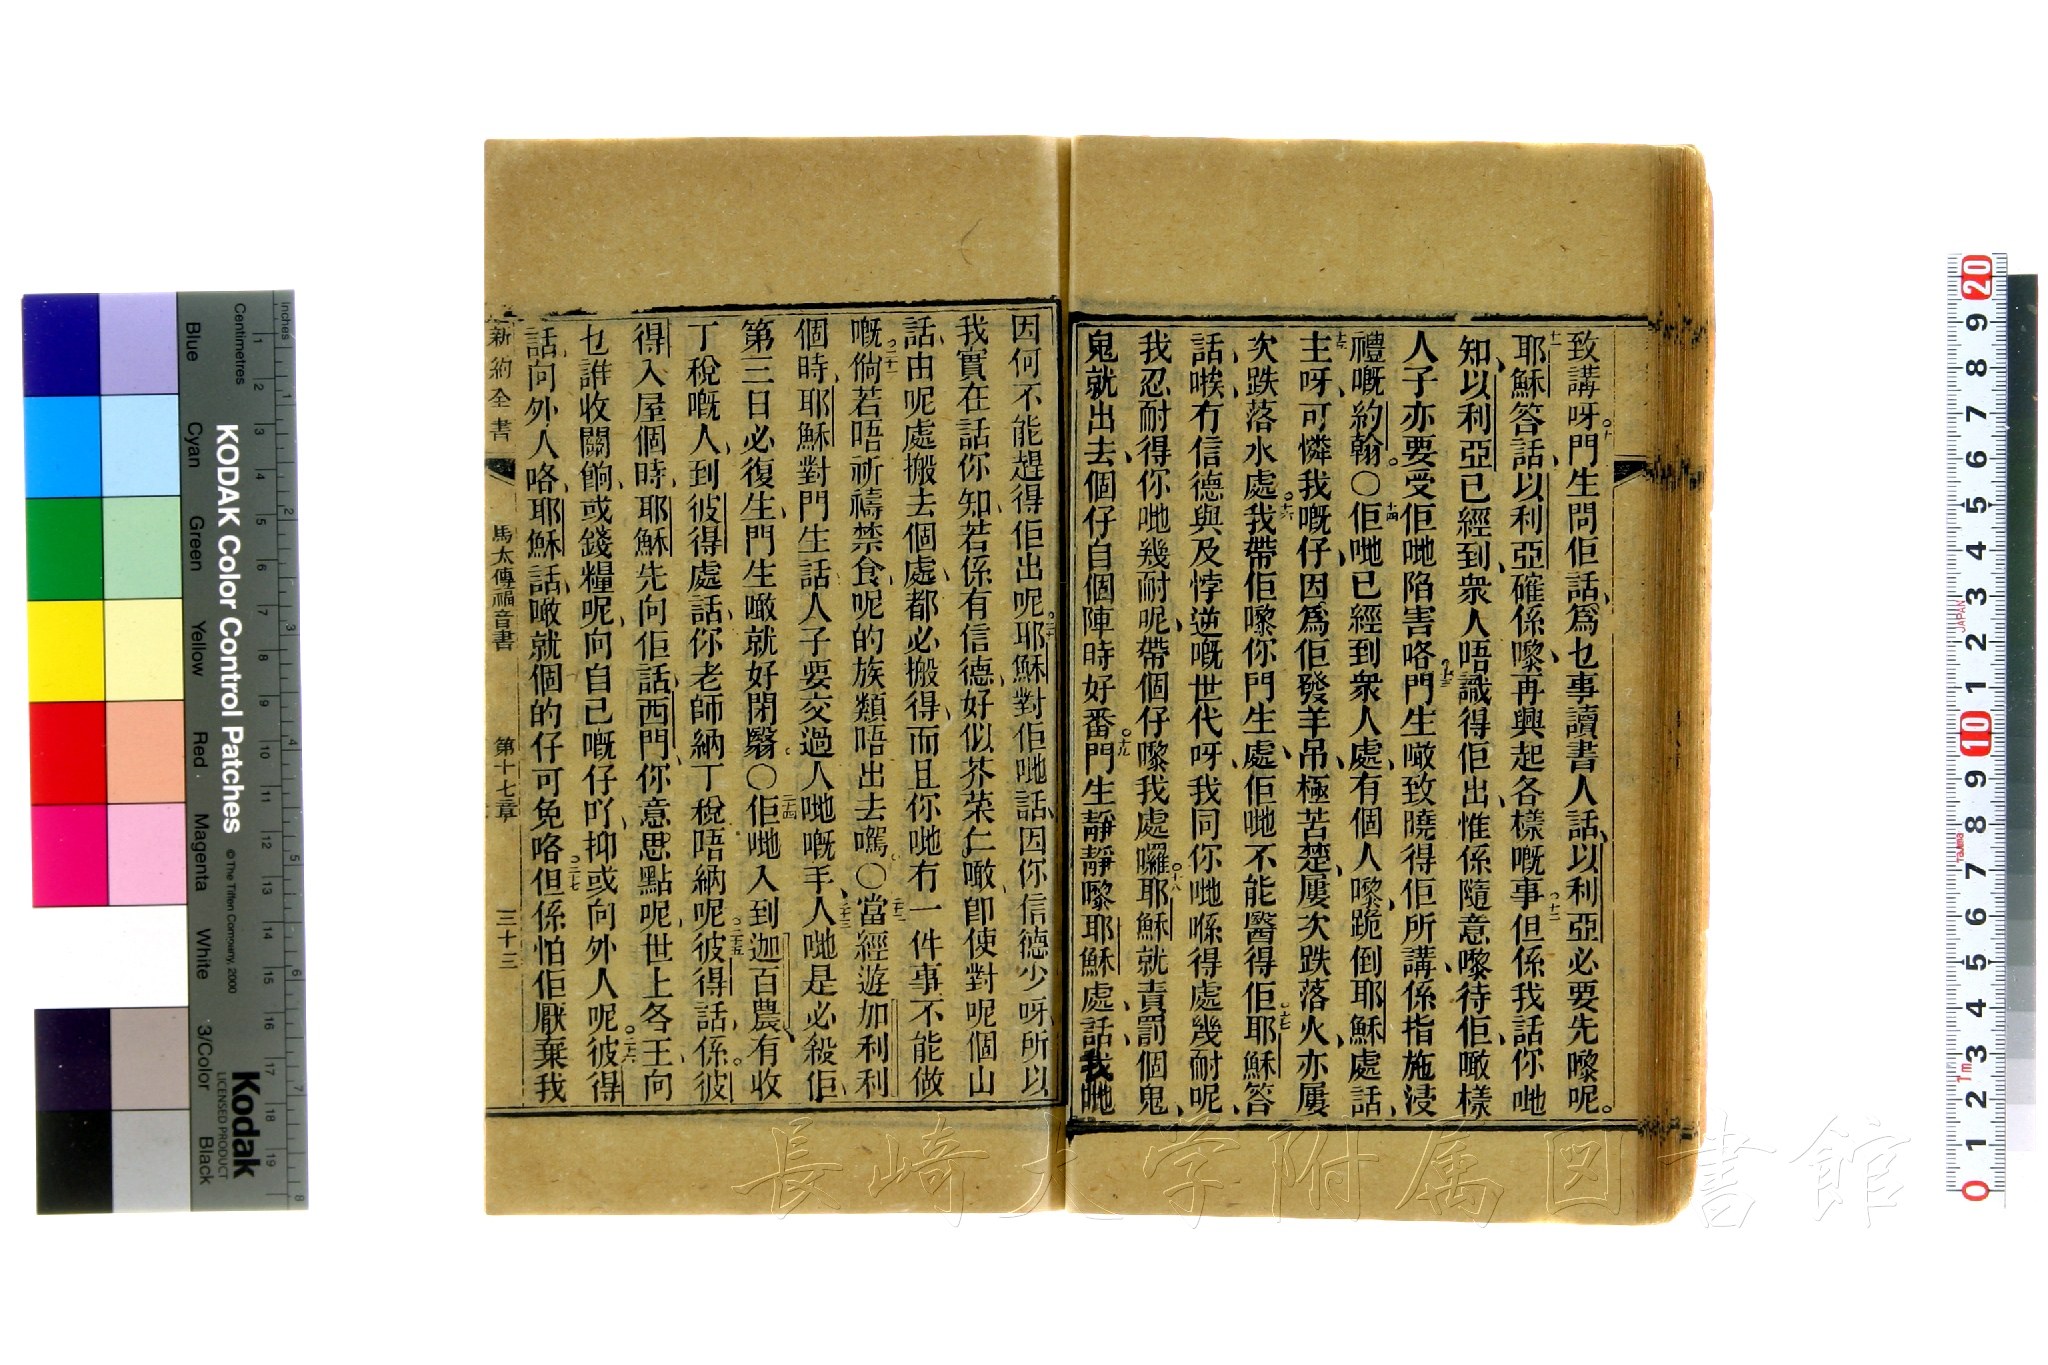 致講呀。門生問佢話、爲乜事讀書人話、以利亞必要先嚟呢。
十
耶穌答話、以利亞確係嚟、再興起各樣嘅事、但係我話你哋
十一
十二
知、以利亞已經到、衆人唔識得佢出、惟係隨意嚟待佢、噉樣
人子亦要受佢哋陷害咯、門生噉致曉得佢所講係指施浸
十三
禮嘅約翰。○佢哋已經到衆人處、有個人嚟、跪倒耶穌處話、
十四
主呀、可憐我嘅仔、因爲佢發羊吊、極苦楚、屢次跌落火、亦屢
十五
次跌落水處。我帶佢嚟你門生處、佢哋不能醫得佢。耶穌答
十六
十七
話、唉、冇信德與及悖逆嘅世代呀、我同你哋喺得處幾耐呢、
我忍耐得你哋幾耐呢、帶個仔嚟我處囉。耶穌就責罰個鬼、
十八
鬼就出去、個仔自個陣時好番。門生靜靜嚟耶穌處話、我哋
十九
因何不能趕得佢出呢。耶穌對佢哋話、因你信德少呀、所以
二十
我實在話你知、若係有信德、好似芥菜仁噉、卽使對呢個山
話、由呢處搬去個處、都必搬得、而且你哋冇一件事不能做
嘅。倘若唔祈禱禁食、呢的族類唔出去㗎。○當經遊加利利
二十一
二十二
個時、耶穌對門生話、人子要交過人哋嘅手、人哋是必殺佢、
二十三
第三日必復生、門生噉就好閉翳。○佢哋入到迦百農、有收
二十四
丁稅嘅人、到彼得處話、你老師納丁稅唔納呢。彼得話、係。彼
二十五
得入屋個時、耶穌先向佢話、西門、你意思點呢、世上各王、向
乜誰收關餉或錢糧呢、向自己嘅仔吖、抑或向外人呢。彼得
二十六
話、向外人咯、耶穌話、噉就個的仔可免咯。但係怕佢厭棄我
二十七
新約全書
馬太傳福音書
第十七章
三十三
KODAK Color Control Patches
© The Tiffen Company, 2000
Kodak
LICENSED PRODUCT
Inches
Centimetres
Blue
Cyan
Green
Yellow
Red
Magenta
White
3/Color
Black
1 2 3 4 5 6 7 8 9 10 11 12 13 14 15 16 17 18 19
1 2 3 4 5 6 7 8
20 9 8 7 6 5 4 3 2 1 10 9 8 7 6 5 4 3 2 1 0
JAPAN
Tajima
1m
長崎大学附属図書館